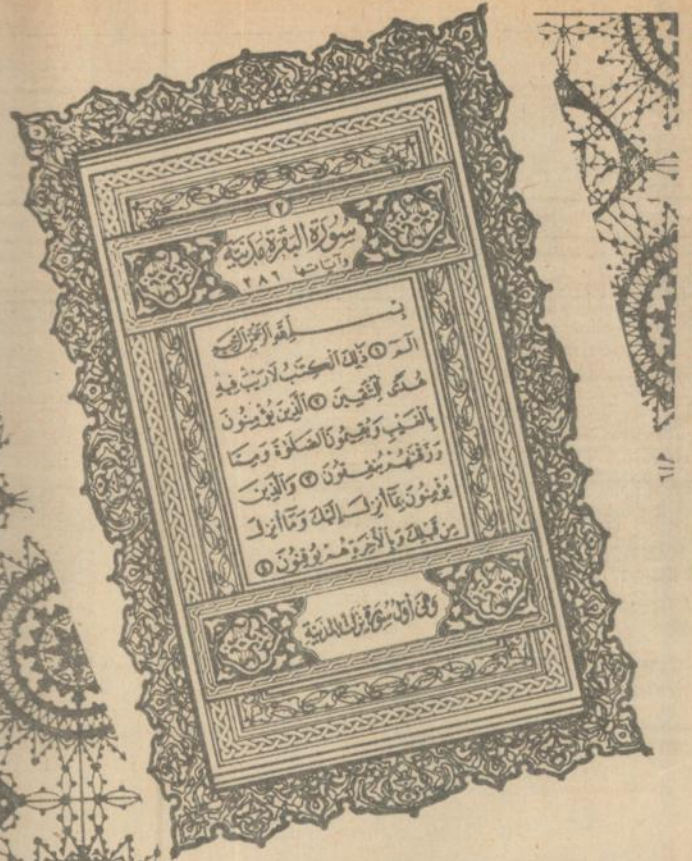 ٢
سورة البقرة مدنية
وآياتها ٢٨٦
بِسْمِ اللَّهِ الرَّحْمَٰنِ الرَّحِيمِ
الٓمٓ ١ ذَٰلِكَ ٱلْكِتَٰبُ لَا رَيْبَ فِيهِ
هُدًى لِّلْمُتَّقِينَ ٢ ٱلَّذِينَ يُؤْمِنُونَ
بِٱلْغَيْبِ وَيُقِيمُونَ ٱلصَّلَوٰةَ وَمِمَّا
رَزَقْنَٰهُمْ يُنفِقُونَ ٣ وَٱلَّذِينَ
يُؤْمِنُونَ بِمَآ أُنزِلَ إِلَيْكَ وَمَآ أُنزِلَ
مِن قَبْلِكَ وَبِٱلْءَاخِرَةِ هُمْ يُوقِنُونَ ٤
وهى أول سورة نزلت بالمدينة